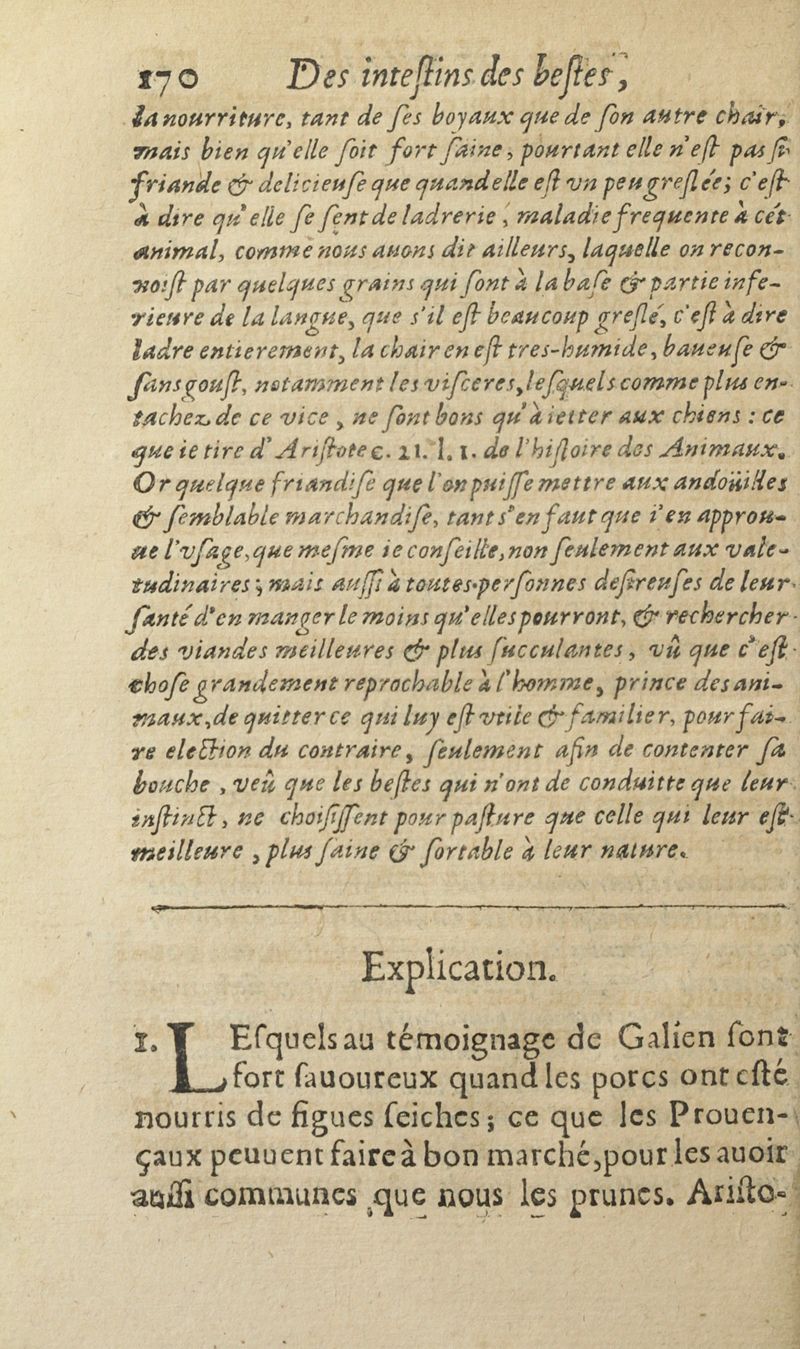 170 Des inteſtins des beſtes,
la nourriture, tant de ſes boyaux que de ſon autre chair,
mais bien qu'elle ſoit fort ſaine, pourtant elle n'eſt pas ſi
friande & delicieuſe que quand elle eſt vn peu greſlée; c'eſt
à dire qu'elle ſe ſent de ladrerie, maladie frequente à cét
animal, comme nous auons dit ailleurs, laquelle on recon-
noiſt par quelques grains qui ſont à la baſe & partie infe-
rieure de la langue, que s'il eſt beaucoup greſlé, c'eſt à dire
ladre entierement, la chair en eſt tres-humide, baueuſe &
ſans gouſt, notamment les viſceres, leſquels comme plus en-
tachez de ce vice, ne ſont bons qu'à ietter aux chiens : ce
que ie tire d'Ariſtote c. 21. l. 1. de l'hiſtoire des Animaux.
Or quelque friandiſe que l'on puiſſe mettre aux andoüilles
& ſemblable marchandiſe, tant s'en faut que i'en approu-
ue l'vſage, que meſme ie conſeille, non ſeulement aux vale-
tudinaires; mais auſſi à toutes perſonnes deſireuſes de leur
ſanté d'en manger le moins qu'elles pourront, & rechercher
des viandes meilleures & plus ſucculantes, vû que c'eſt
choſe grandement reprochable à l'homme, prince des ani-
maux, de quitter ce qui luy eſt vtile & familier, pour fai-
re election du contraire, ſeulement afin de contenter ſa
bouche, veû que les beſtes qui n'ont de conduitte que leur
inſtinct, ne choiſiſſent pour paſture que celle qui leur eſt
meilleure, plus ſaine & ſortable à leur nature.
Explication.
1. LEſquels au témoignage de Galien ſont
fort ſauoureux quand les porcs ont eſté
nourris de figues ſeiches; ce que les Prouen-
çaux peuuent faire à bon marché, pour les auoir
auſſi communes que nous les prunes. Ariſto-